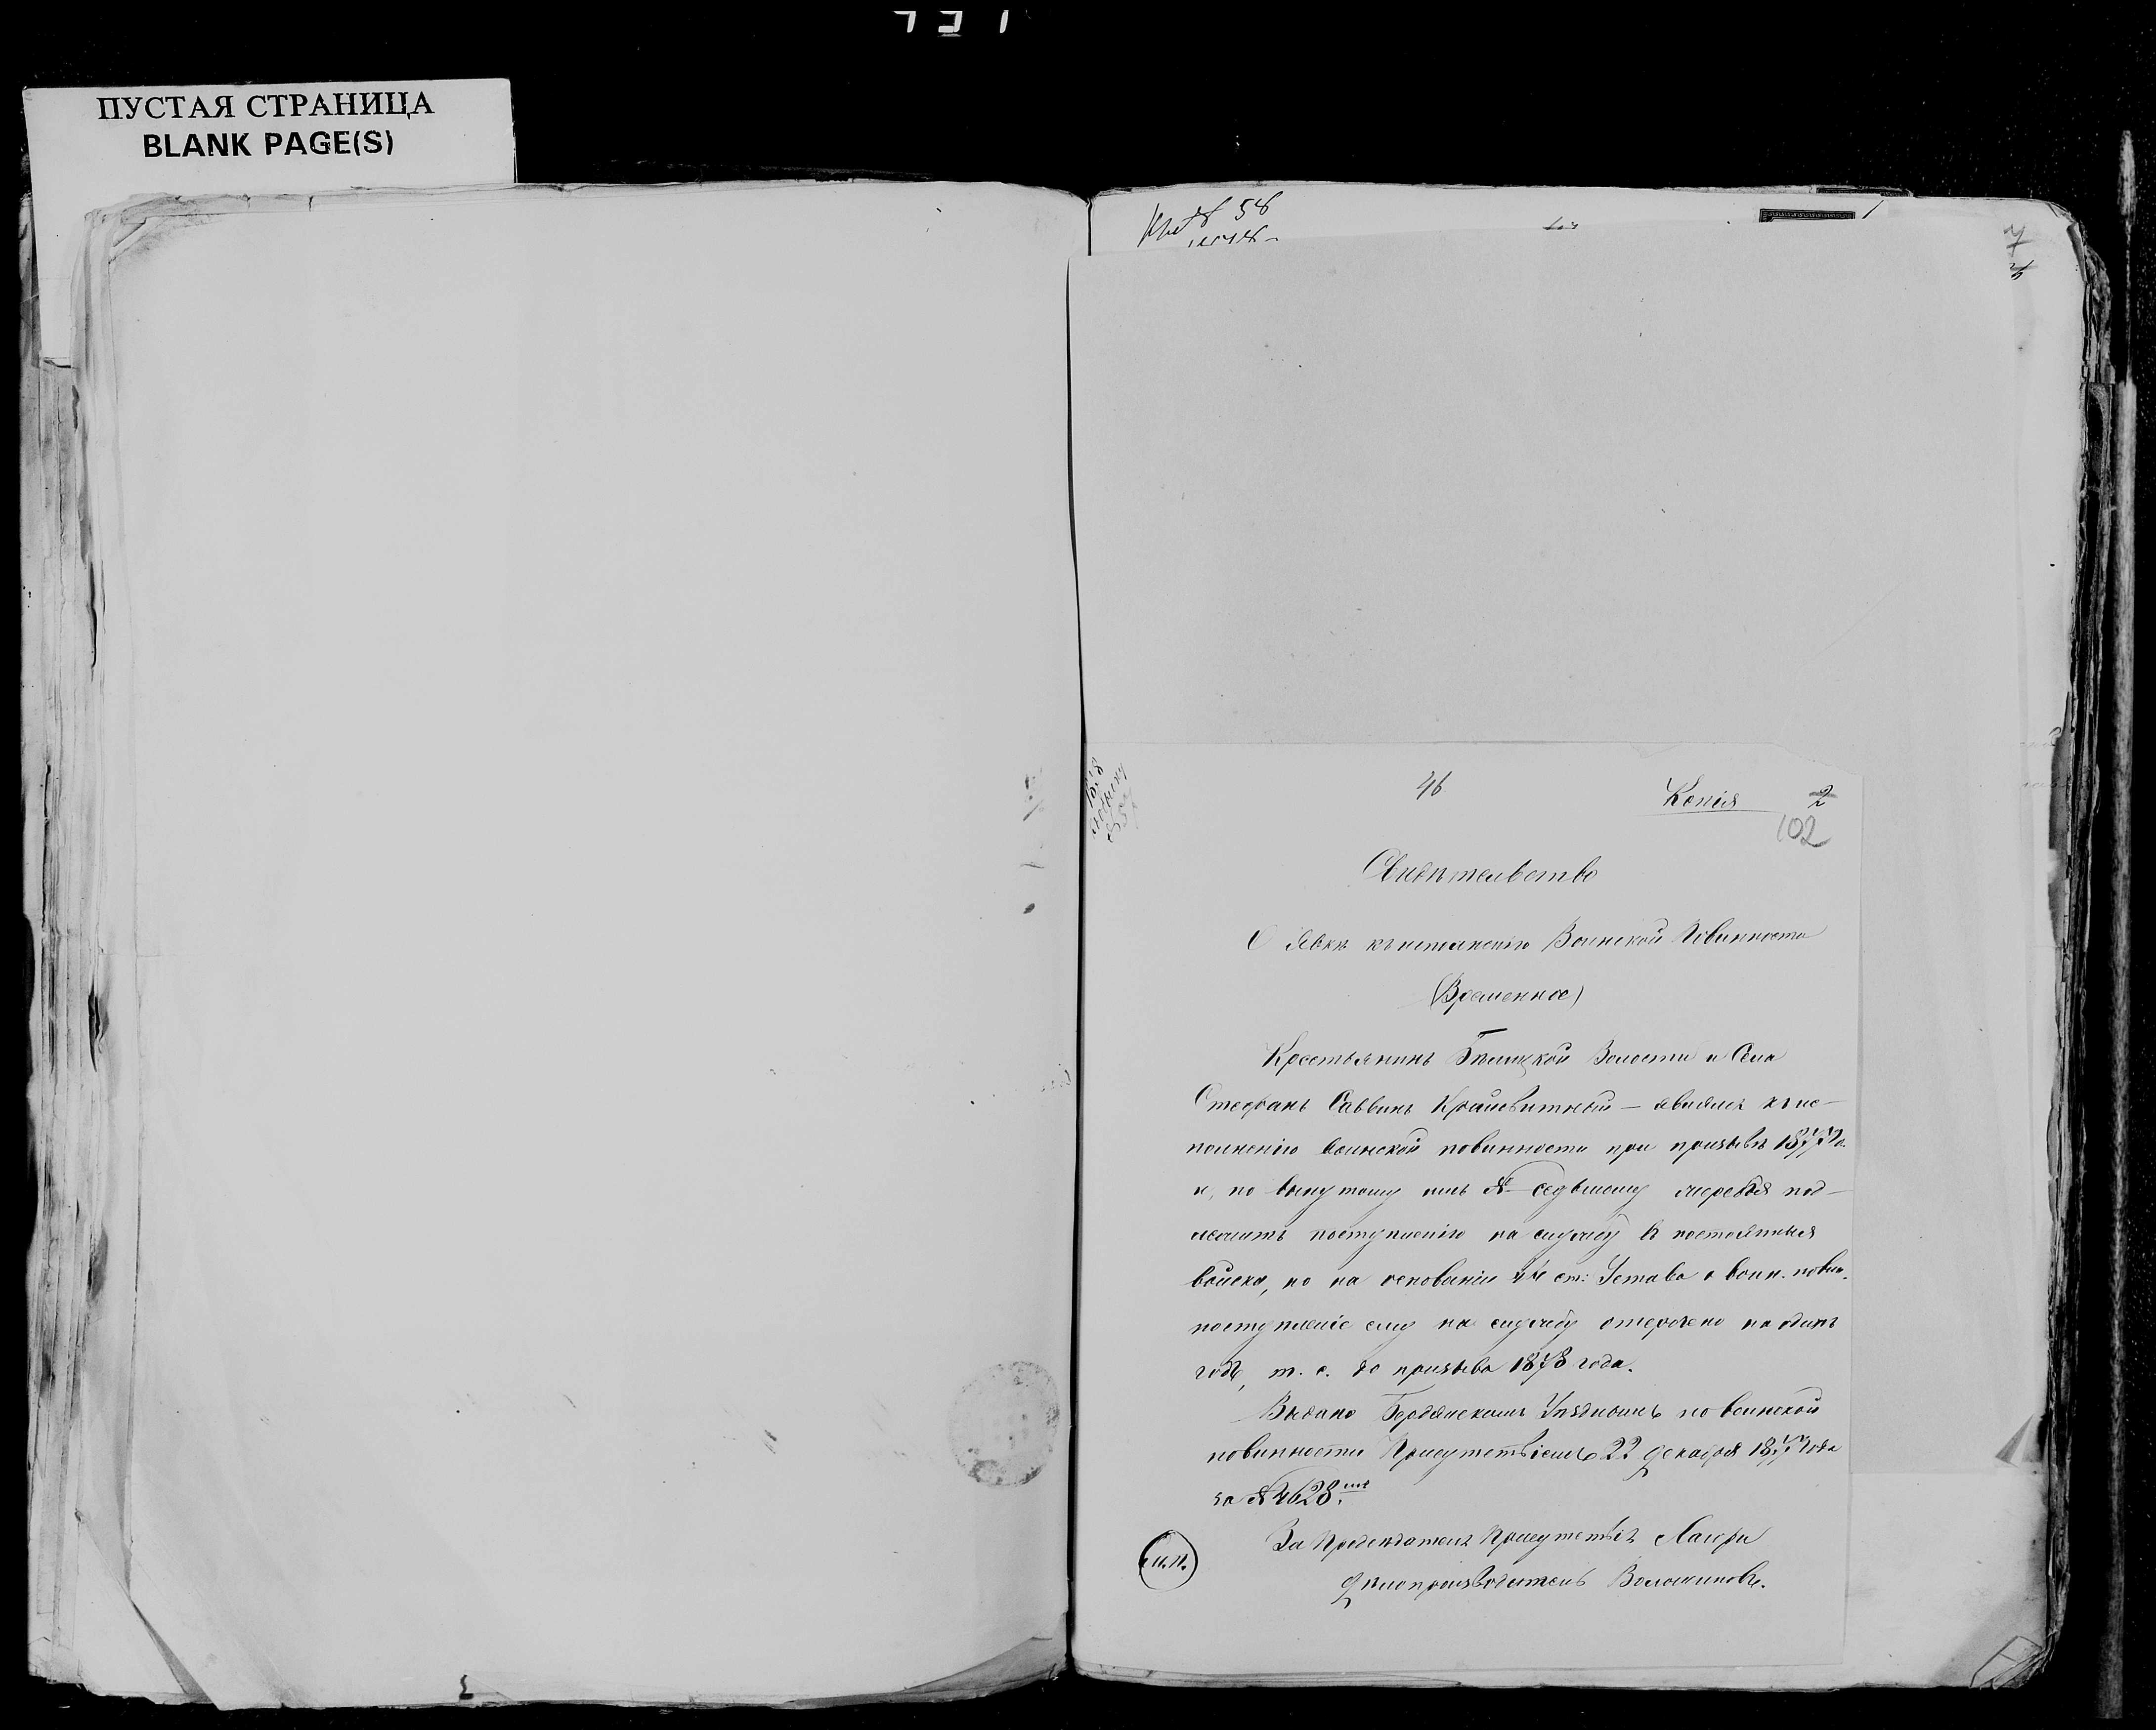 ПУСТАЯ СТРАНИЦА
BLANK PAGE(S)
58
46
Копія 2
102
Свидѣтельство
О явкѣ къ исполненію Воинской Повинности
(Временное)
Крестьянинъ Волости и Села
Стефанъ Саввинъ — явился къ ис-
полненію воинской повинности при призывѣ 1877 го.
и, по вынутому имъ № седьмому жеребья под-
лежитъ поступленію на службу въ постоянныя
войска, но на основаніи 44 ст: Устава о воин. повин.
поступленіе ему на службу отсрочено на одинъ
годъ, т. е. до призыва 1878 года.
Выдано Бердянскимъ Уѣзднымъ по воинской
повинности Присутствіемъ 22 декабря 1877 года
за № 4628.
За Предсѣдателя Присутствія
М.П.
Дѣлопроизводитель Волошиновъ.